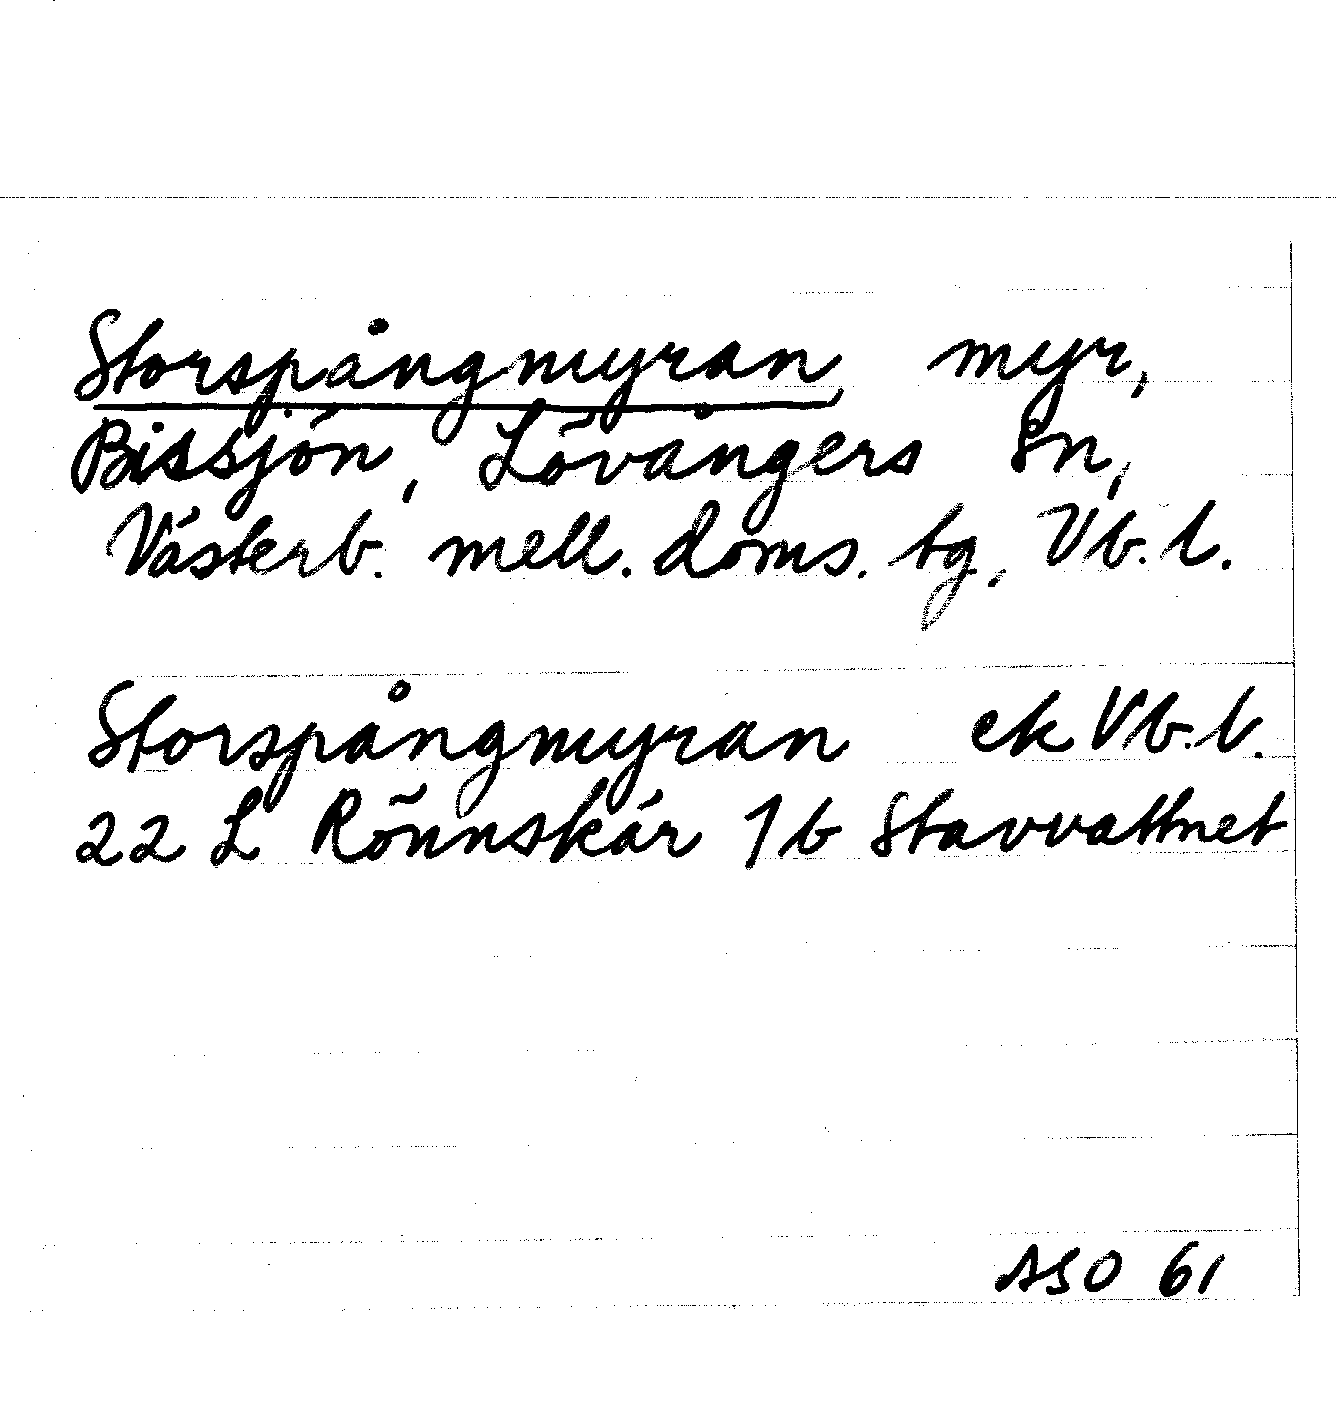 Storspångmyran, myr,
Bissjön, Lövångers Sn,
Västerb. mell. doms. tg, Vb. l.
Storspångmyran ek Vb. l.
22 L Rönnskär 1 b Stavvattnet
ASO 61